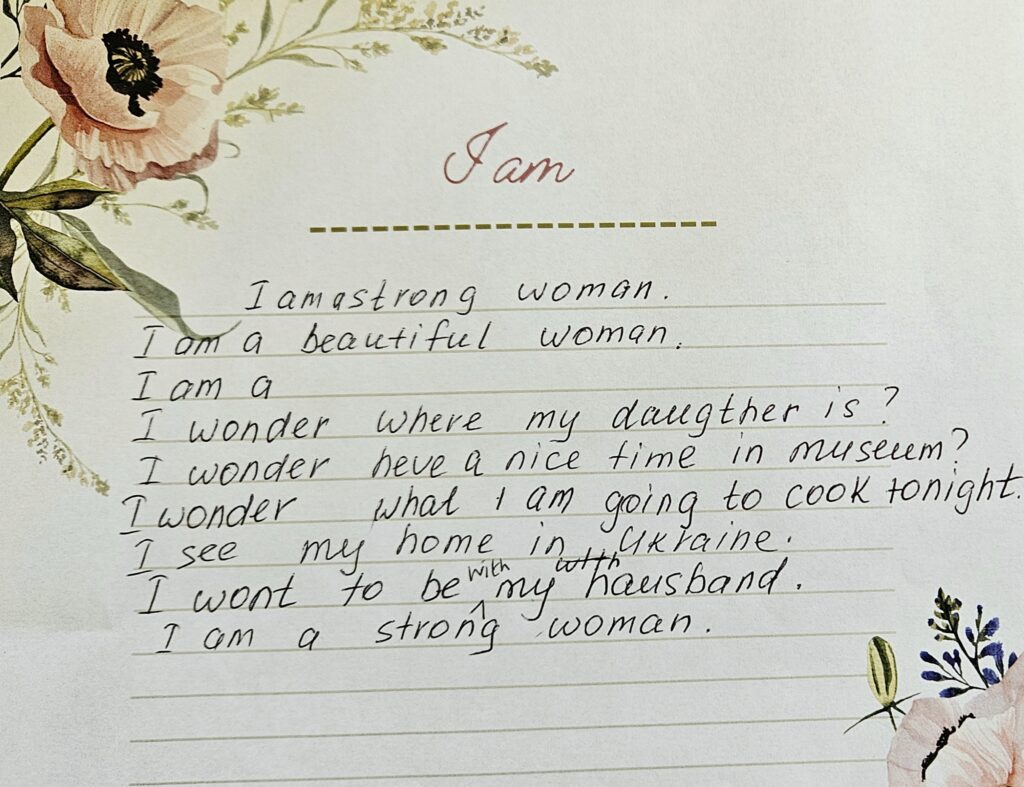 I am
I am a strong woman.
I am a beautiful woman.
I am a
I wonder where my daugther is?
I wonder heve a nice time in museum?
I wonder what I am going to cook tonight.
I see my home in Ukraine.
I wont to be with my with hausband.
I am a strong woman.